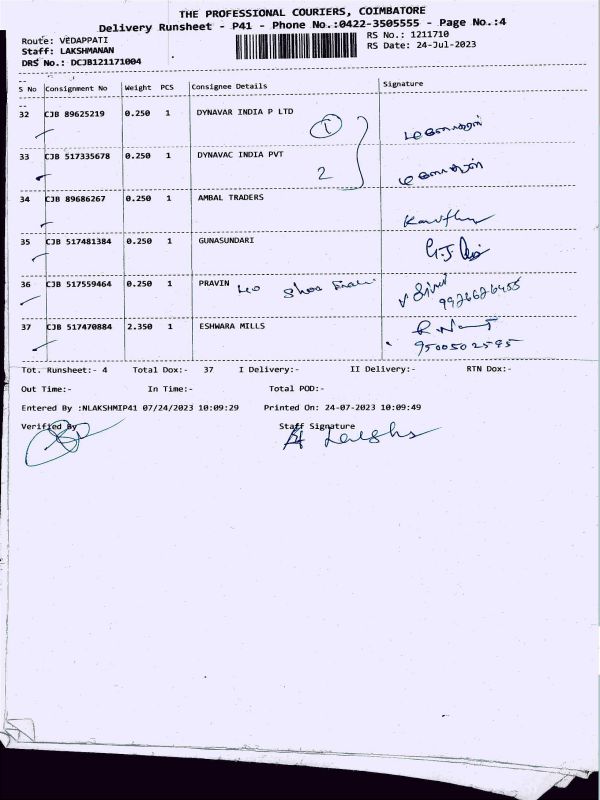 THE PROFESSIONAL COURIERS, COIMBATORE
Delivery Runsheet - P41 - Phone No.:0422-3505555 - Page No.:4
Route: VEDAPPATI RS No.: 1211710
Staff: LAKSHMANAN RS Date: 24-Jul-2023
DRS No.: DCJB121171004
S No Consignment No Weight PCS Consignee Details Signature
32 CJB 89625219 0.250 1 DYNAVAR INDIA P LTD
1
33 CJB 517335678 0.250 1 DYNAVAC INDIA PVT
2
34 CJB 89686267 0.250 1 AMBAL TRADERS
35 CJB 517481384 0.250 1 GUNASUNDARI
36 CJB 517559464 0.250 1 PRAVIN
37 CJB 517470884 2.350 1 ESHWARA MILLS
9500502595
Tot. Runsheet:- 4 Total Dox:- 37 I Delivery:- II Delivery:- RTN Dox:-
Out Time:- In Time:- Total POD:-
Entered By :NLAKSHMIP41 07/24/2023 10:09:29 Printed On: 24-07-2023 10:09:49
Verified By Staff Signature